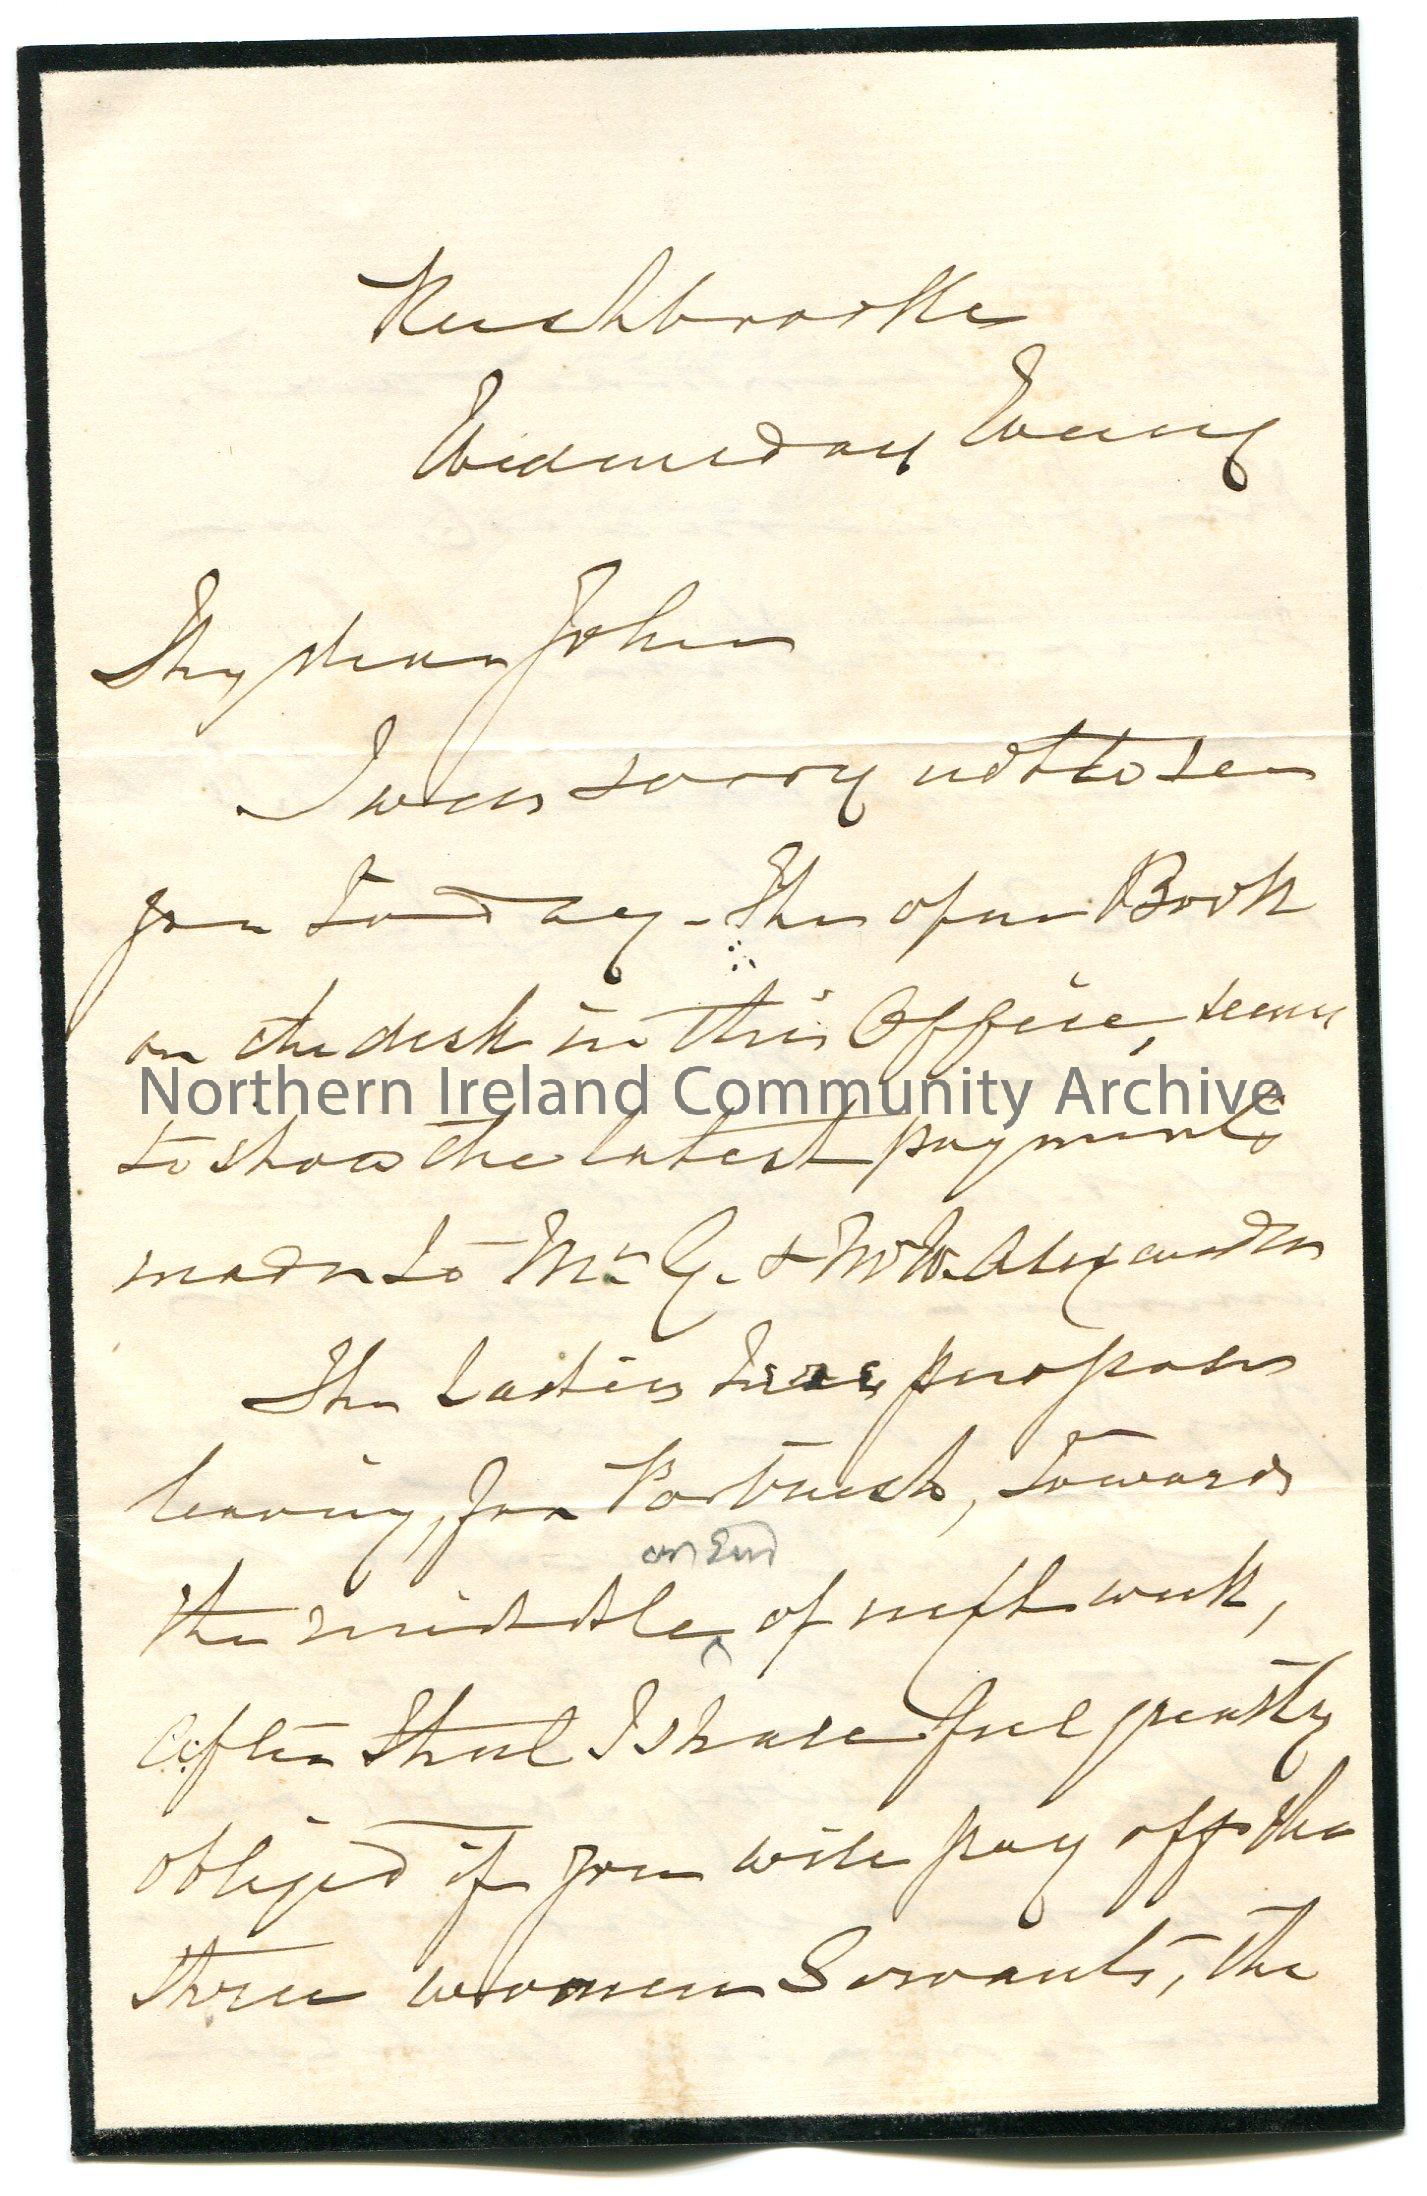 Rushbrooke
Wednesday Evening
My dear John
I was sorry not to see
you to day - The open Book
on the desk in this Office, seems
Northern Ireland Community Archive
to show the latest payments
made to Mr G. & Mr W. Alexander
The Ladies here propose
leaving, for Portrush, towards
or End
the middle of next week,
after that I shall feel greatly
obliged if you will pay off the
three women Servants, the